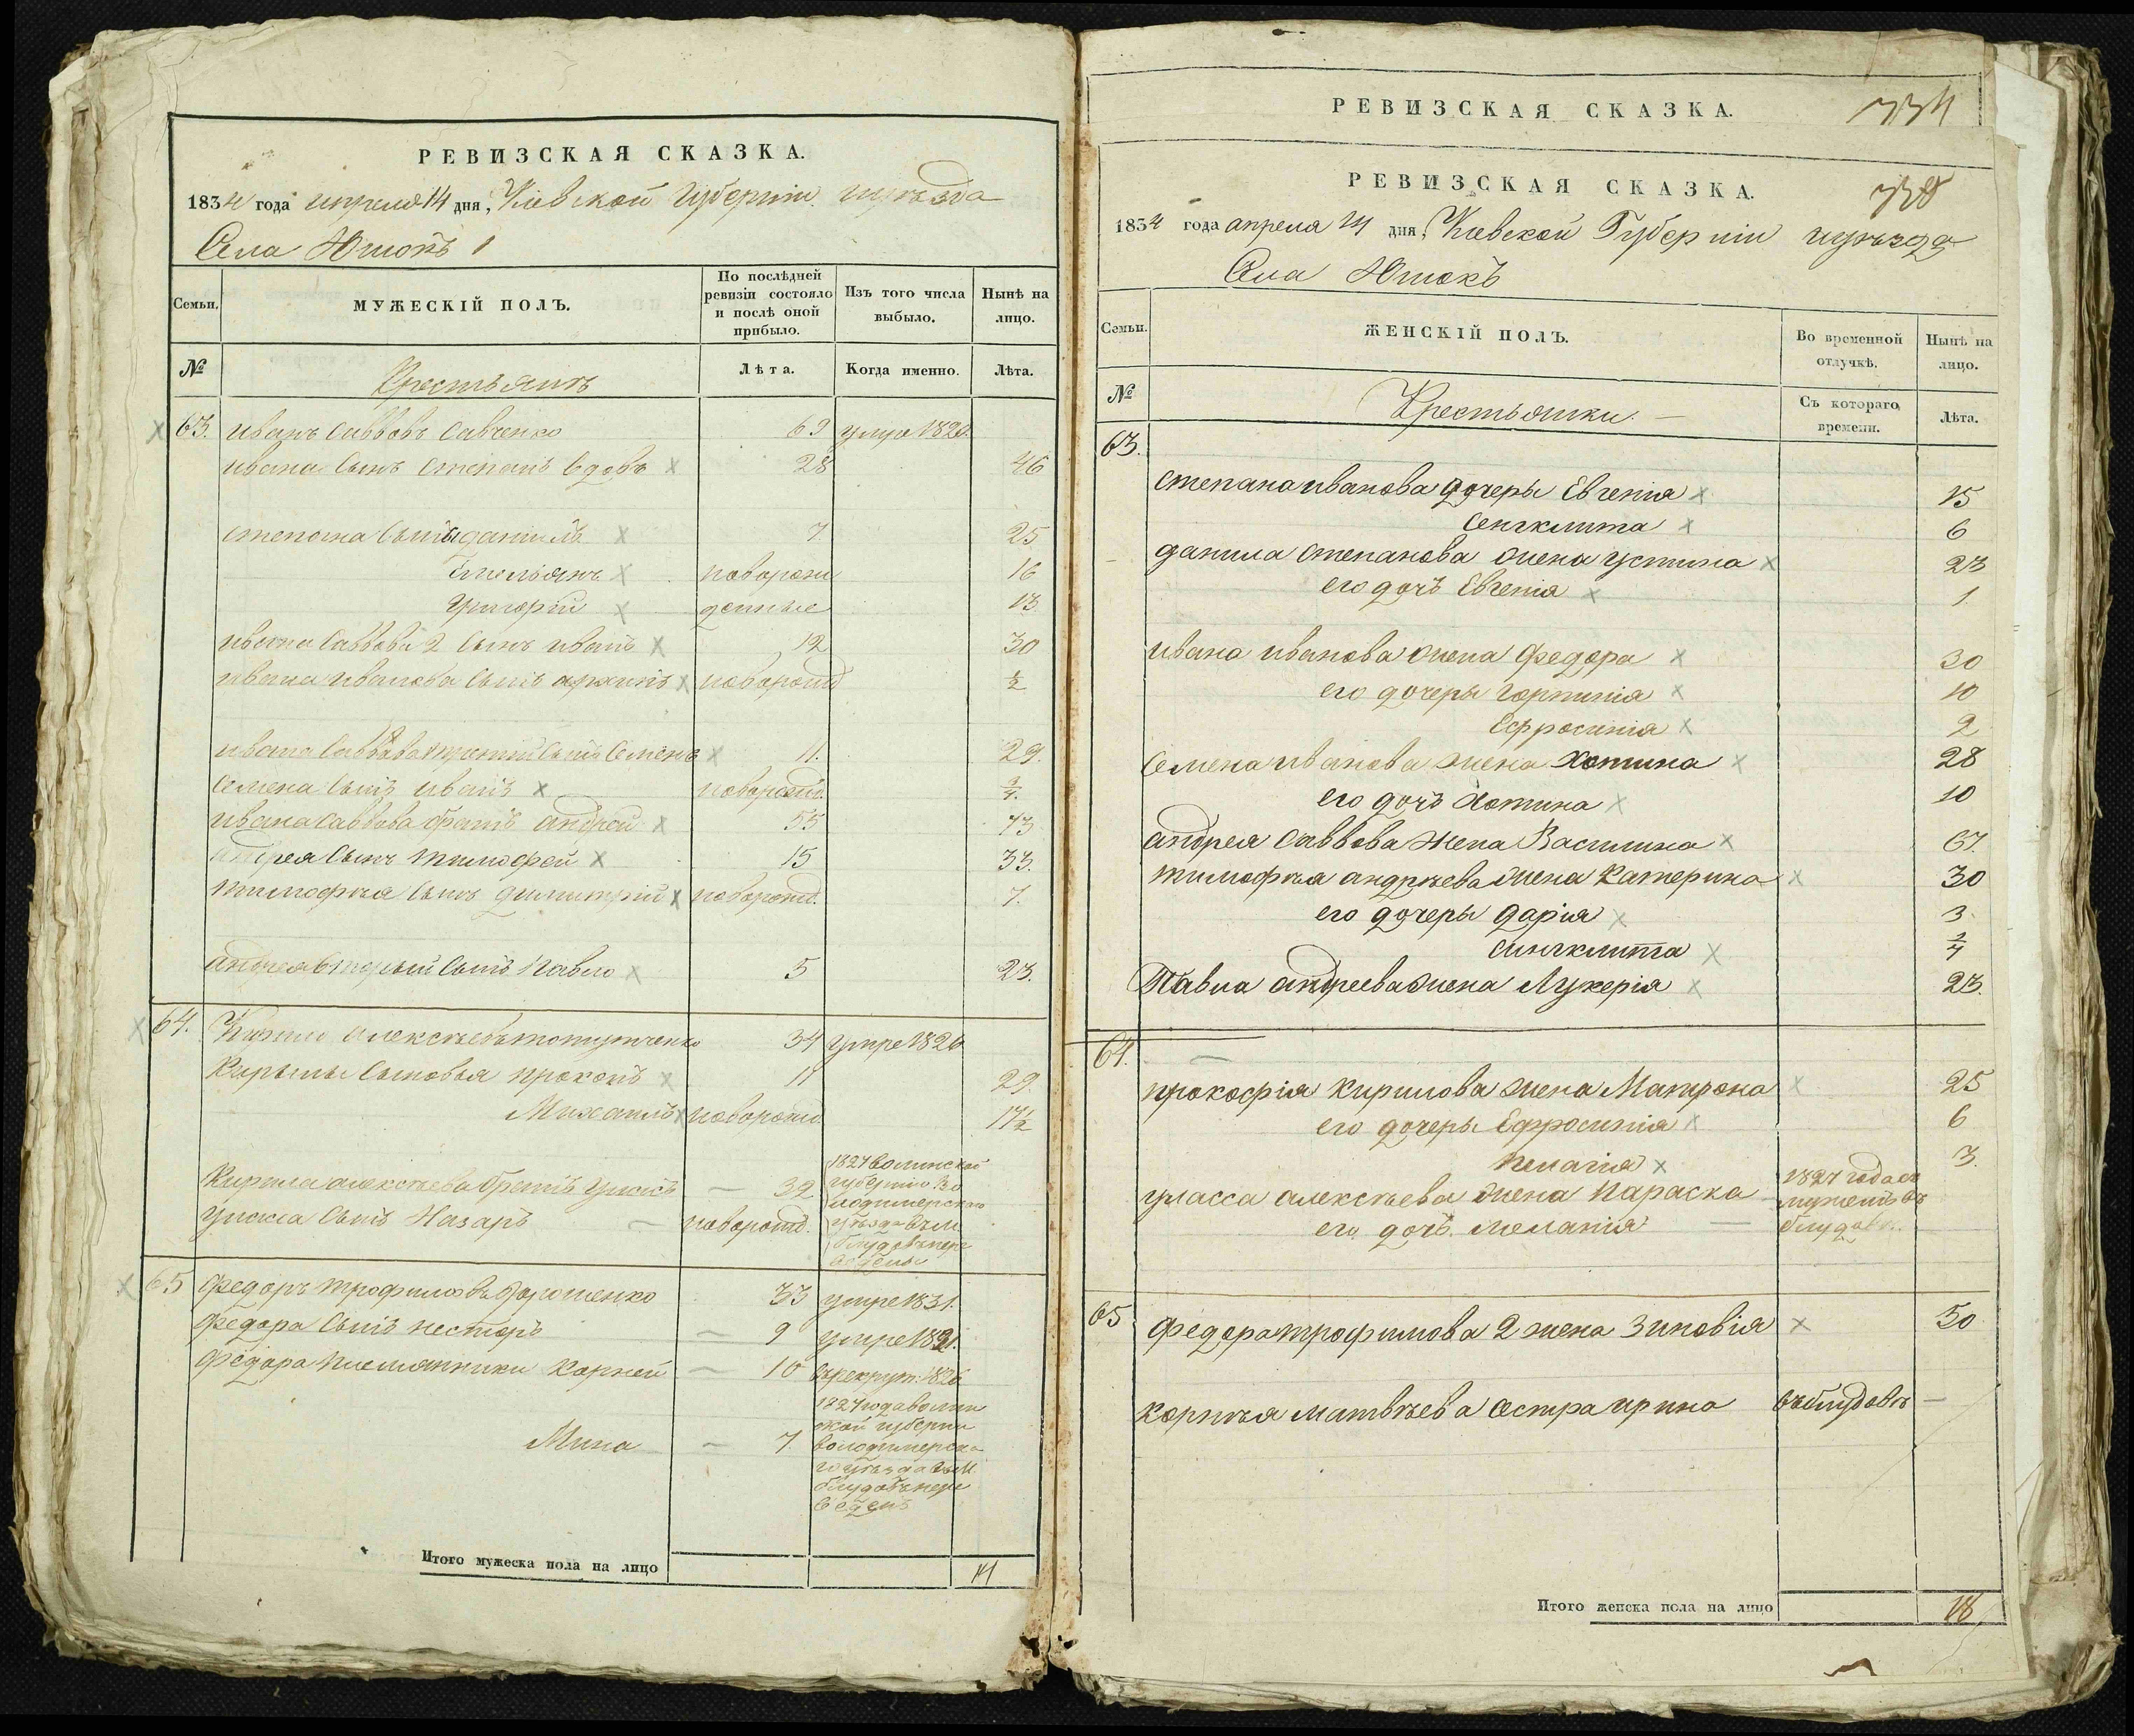 РЕВИЗСКАЯ СКАЗКА.
1834 года апреля 14 дня, Кіевской Губерніи уѣзда
Села Юшокъ
Семьи.
МУЖЕСКІЙ ПОЛЪ.
По послѣдней ревизіи состояло и послѣ оной прибыло.
Изъ того числа выбыло.
Нынѣ на лицо.
№
Крестьянъ
Лѣта.
Когда именно.
Лѣта.
63. Иванъ Саввовъ Савченко 69
Ивана Сынъ Степанъ вдовъ 28 46
Степана Сыны данилъ 7 25
Емельянъ новорож 16
Григорій денные 13
Ивана Саввова 2 Сынъ Иванъ 12 30
Ивана Иванова Сынъ новорожд ½
Ивана Саввова третий Сынъ Семенъ 11. 29.
Семена Сынъ Иванъ новорожд. ¾.
Ивана Саввова братъ Андрей 55 73
Андрея Сынъ Тимофей 15 33.
Тимофея Сынъ димитрій новорожд. 7.
Андрея вторый Сынъ Павло 5 23.
64. Кирило Алексѣевъ 34 умре 1826
Кирылы Сыновья прокопъ 11 29.
Михаилъ новорожд. 17½
Кирила алексѣева братъ Уласъ — 32
Уласа Сынъ Назаръ — новорожд.
1827 волинской
губерніи во
лодимерскаго
уѣзда въ м
блудовъ пере
ведены
65 Федоръ трофимовъ дорошенко 33 умре 1831.
Федора Сынъ несторъ — 9 умре 1831.
Федора племянники Корней — 10 въ рекрут. 1826
Мина — 7.
1827 года волин
ской губерни
володимерска
го уѣзда въ м
блудовъ пере
веденъ
Итого мужеска пола на лицо 14
РЕВИЗСКАЯ СКАЗКА.
334
РЕВИЗСКАЯ СКАЗКА.
1834 года апреля 14 дня, Кіевской Губерніи уѣзда
Села Юшокъ
Семьи.
ЖЕНСКІЙ ПОЛЪ.
Во временной отлучкѣ.
Нынѣ на лицо.
№
Крестьянки. —
Съ котораго времени.
Лѣта.
63.
Степана иванова дочеры Евгенія 15
Сенклита 6
данила степанова жена устина 23
его дочъ Евгенія 1.
Ивана иванова жена Федора 30
его дочеры горпинія 10
Ефросинія 2
Семена иванова жена Хотина 28
его дочъ Хотина 10
Андрея Саввова жена Василина 67.
Тимофѣя андрѣева жена Катерина 30
его дочеры дарія 3.
Синклита
Павла андреева жена Лукерія 23.
64. —
прокофія кирилова жена Матрона 25
его дочеры Ефросинія 6
пелагія 3.
уласса алексѣева жена параска
его дочъ. меланія —
1827 года съ
мужемъ въ
блудовъ.
65 Федора трофимова 2 жена Зиновія 50
Корнѣя матвѣева сестра ирина въ блудовъ —
Итого женска пола на лицо 18